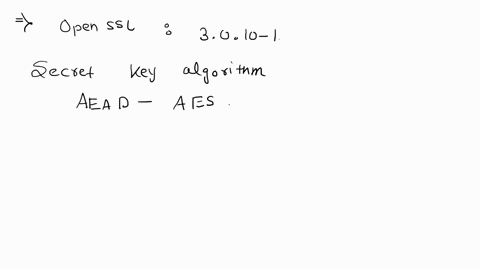 ⇒ Open SSL : 3.0.10-1.
Secret key algorithm
AEAD - AES.